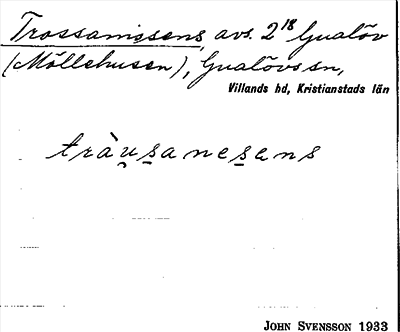 Trossamissens, avs. 2¹⁸ Gualöv
(Möllehusen), Gualövs sn,
Villands hd, Kristianstads län
tràu̯s̲anes̲ens
JOHN SVENSSON 1933